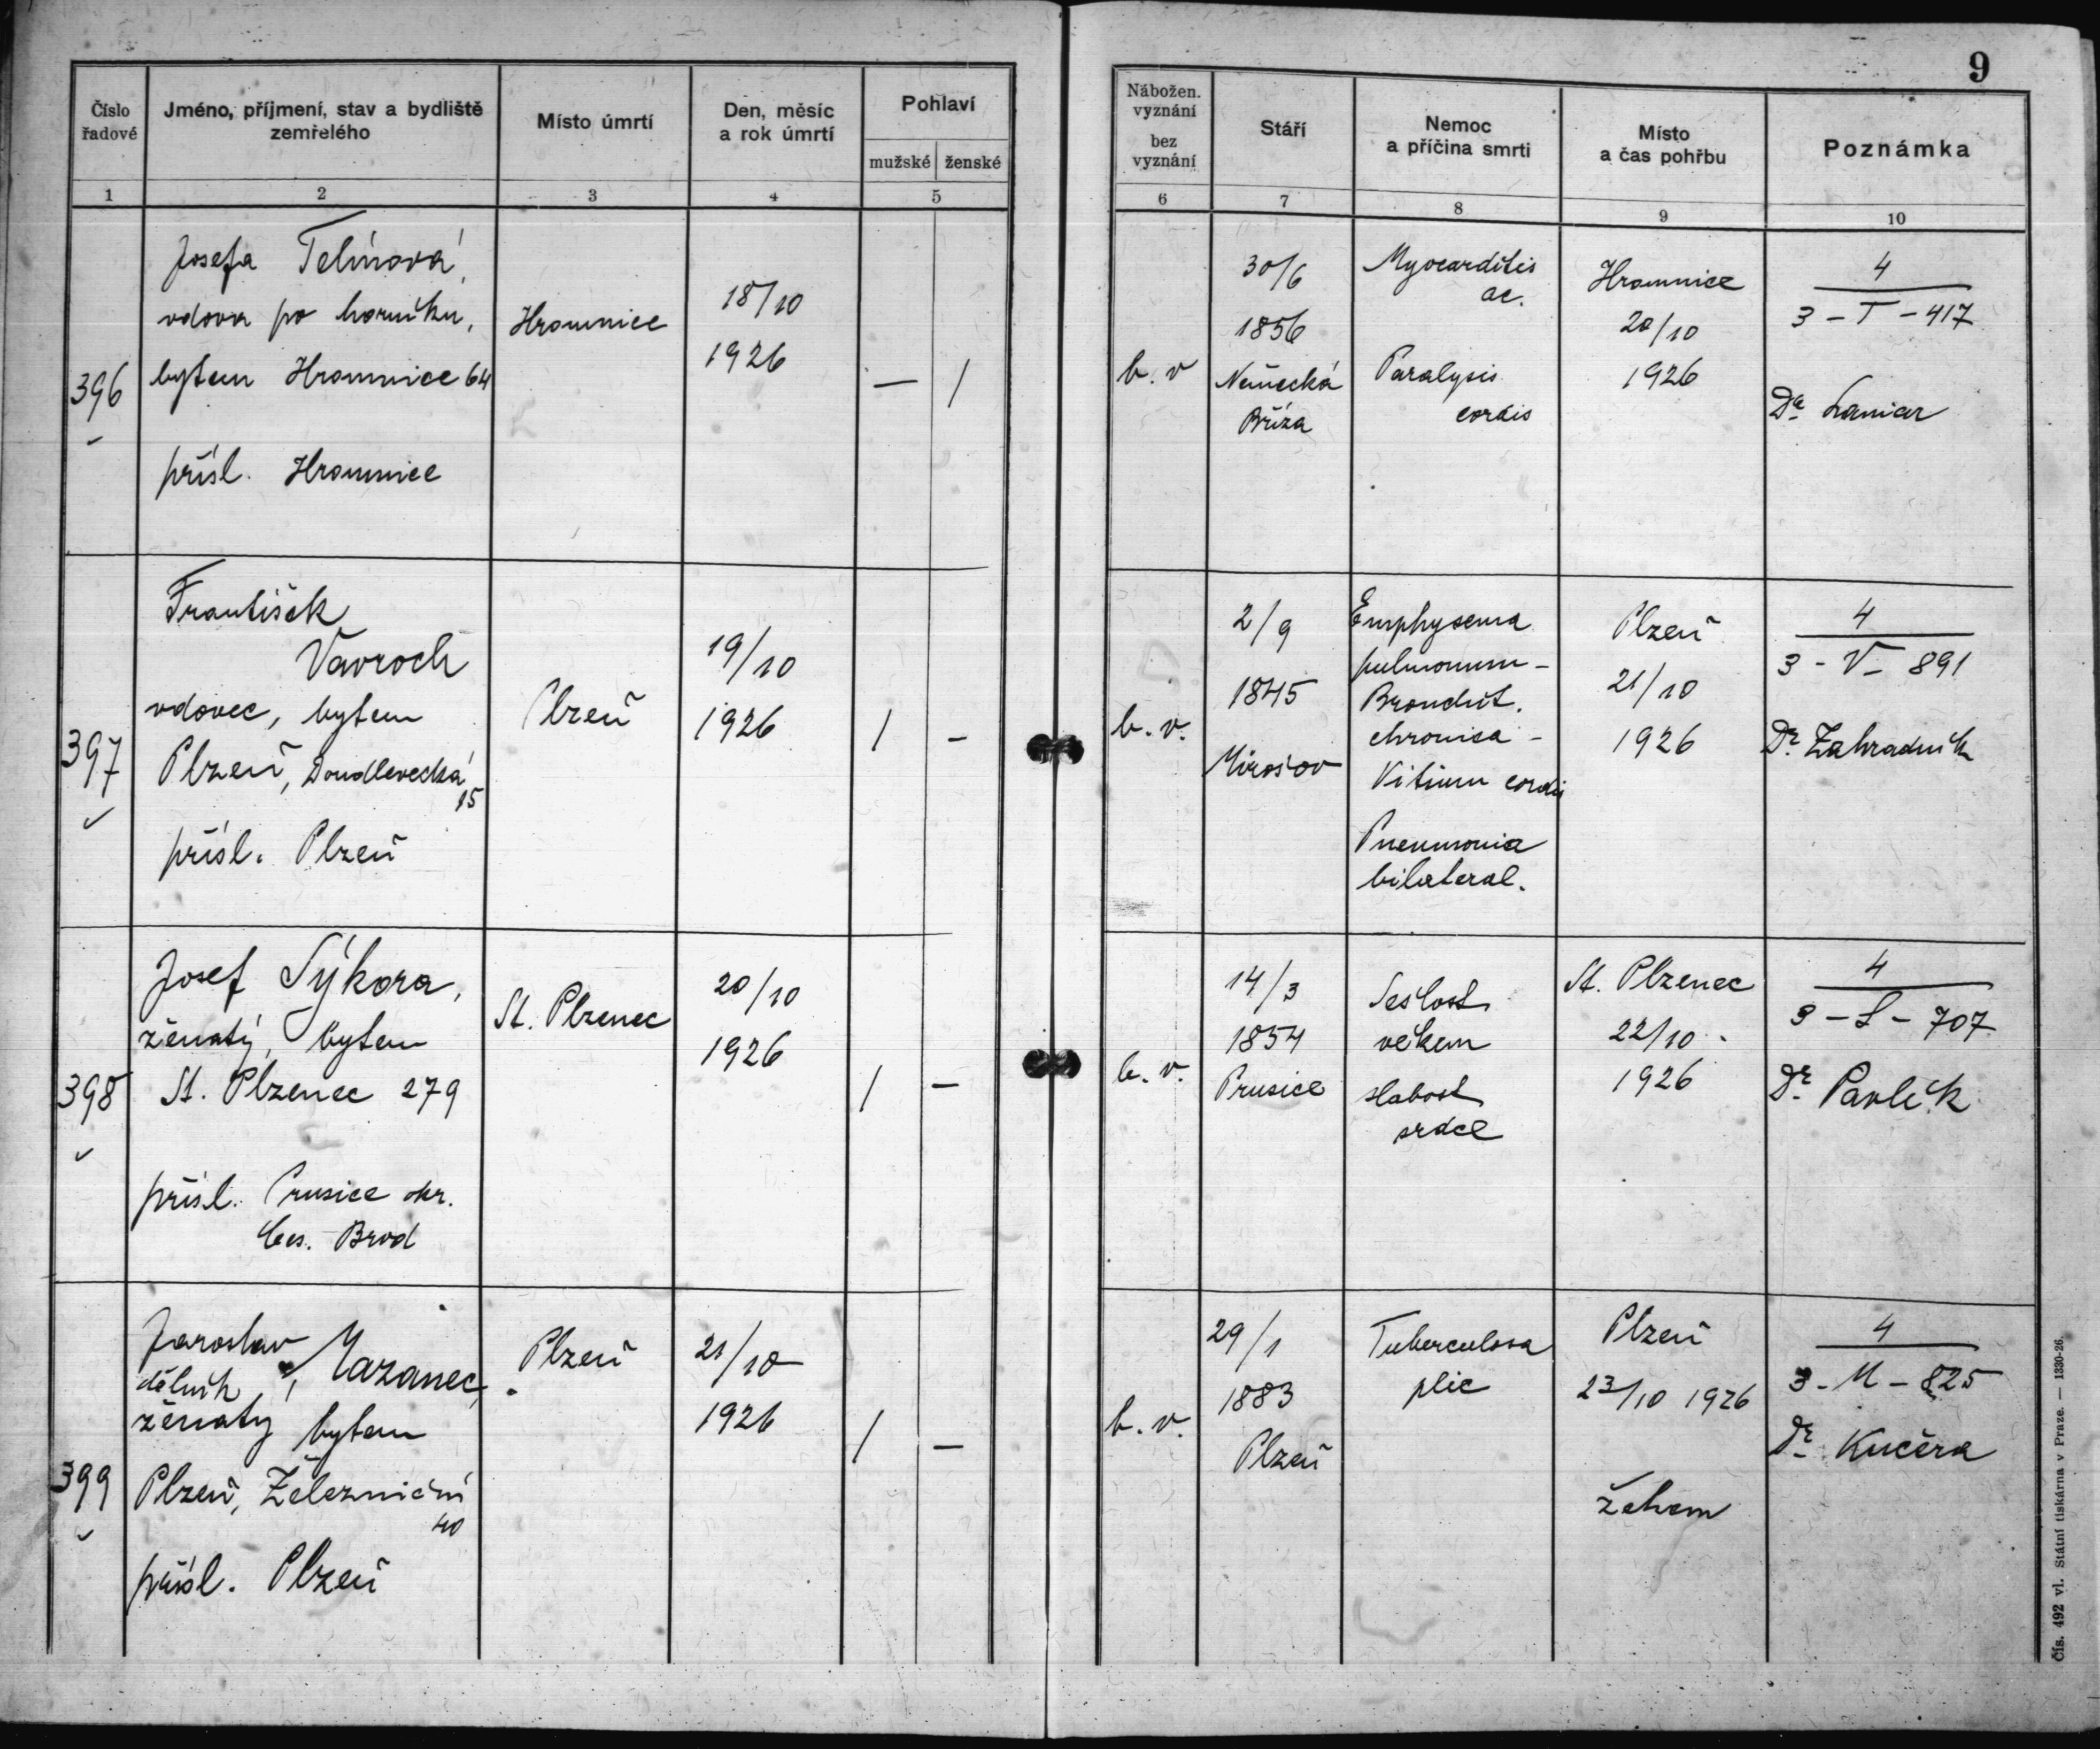 9
Číslo řadové
Jméno, příjmení, stav a bydliště zemřelého
Místo úmrtí
Den, měsíc a rok úmrtí
Pohlaví
mužské
ženské
Nábožen. vyznání
bez vyznání
Stáří
Nemoc a příčina smrti
Místo a čas pohřbu
Poznámka
1
2
3
4
5
6
7
8
9
10
396
Josefa Telínová,
vdova po horníku,
bytem Hromnice 64
přísl. Hromnice
Hromnice
18/10
1926
— /
b. v
30/6
1856
Německá
Bříza
Myocarditis
ac.
Paralysis
cordis
Hromnice
20/10
1926
4
3 – T – 417
397
František
Vavroch
vdovec, bytem
Plzeň, Doudlevecká
15
přísl. Plzeň
Plzeň
19/10
1926
/ –
b. v.
2/9
1845
Mirošov
Emphysema
pulmonum –
Bronchit.
chronica –
Vitium cordis
Pneumonia
bilateral.
Plzeň
21/10
1926
4
3 – V – 891
Dr. Zahradník
398
Josef Sýkora,
ženatý, bytem
St. Plzenec 279
přísl. Prusice okr.
Čes. Brod
St. Plzenec
20/10
1926
/ –
b. v.
14/3
1854
Prusice
Sešlost
věkem
slabost
srdce
St. Plzenec
22/10
1926
4
3 – S – 707
Dr. Pavlík
399
Jaroslav
dělník, Mazanec,
ženatý bytem
Plzeň, Železniční
40
přísl. Plzeň
Plzeň
21/10
1926
/ –
b. v.
29/1
1883
Plzeň
Tuberculosa
plic
Plzeň
23/10 1926
žehem
4
3 – M – 825
Dr. Kučera
Čís. 492 vl. Státní tiskárna v Praze. — 1330-26.